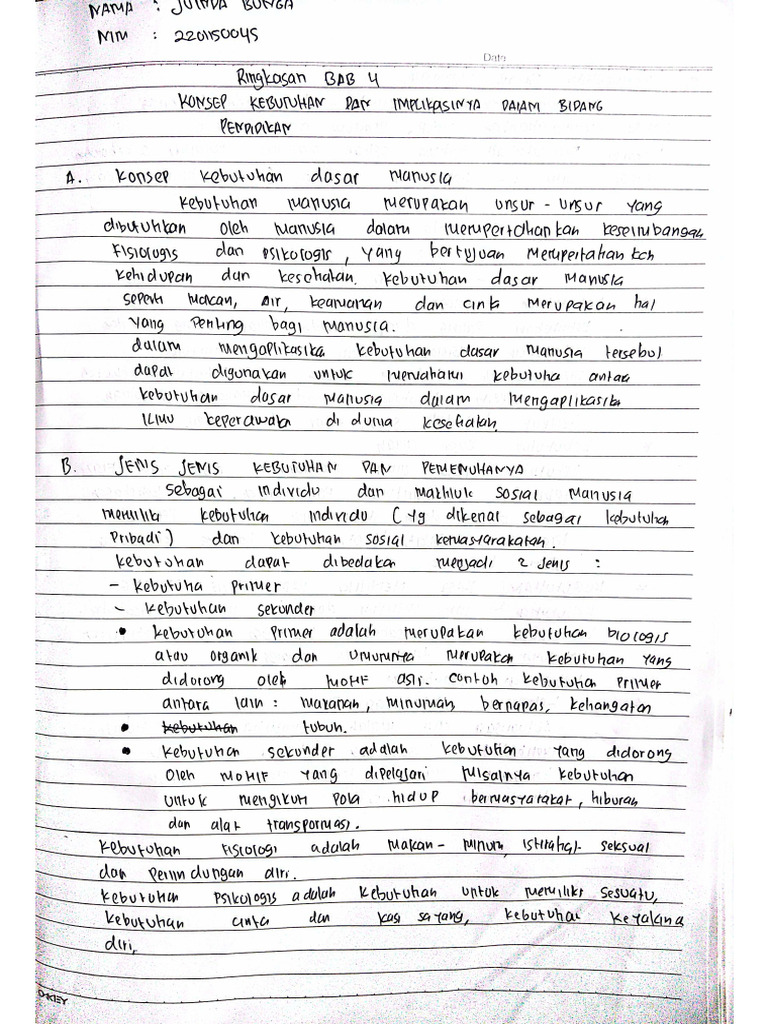 NAMA : JUINDA BUNGA
NIM : 2201150045
Date
Ringkasan BAB 4
KONSEP KEBUTUHAN DAN IMPLIKASINYA DALAM BIDANG
PENDIDIKAN
A. Konsep kebutuhan dasar Manusia
kebutuhan Manusia Merupakan unsur - unsur yang
dibutuhkan oleh Manusia dalam Mempertahankan keseimbangan
Fisiologis dan psikologis, yang bertujuan Mempertahankan
kehidupan dan kesehatan. kebutuhan dasar Manusia
seperti Makan, Air, keamanan dan cinta Merupakan hal
yang Penting bagi Manusia.
dalam mengaplikasika kebutuhan dasar Manusia tersebut
dapat digunakan untuk Memahami kebutuha antaa
kebutuhan dasar Manusia dalam mengaplikasik
ILMU keperawata di dunia kesehatan.
B. JENIS JENIS KEBUTUHAN DAN PEMENUHANYA.
sebagai individu dan Makhluk sosial Manusia
memiliki kebutuhan individu (yg dikenal sebagai kebutuhan
Pribadi) dan kebutuhan sosial kemasyarakatan.
kebutuhan dapat dibedakan menjadi 2 Jenis :
- kebutuha primer
- kebutuhan sekunder
• kebutuhan primer adalah merupakan kebutuhan biologis
atau organik dan umumnya Merupakan kebutuhan yang
didorong oleh MOTIF asli. contoh kebutuhan primer
antara lain : makanan, minuman, bernapas, kehangatan
• kebutuhan tubuh.
• kebutuhan sekunder adalah kebutuhan yang didorong
oleh MOTIF yang dipelajari Misalnya kebutuhan
untuk mengikuti pola hidup bermasyarakat, hiburan
dan alat transpormasi.
kebutuhan fisiologi adalah Makan - Minum, istirahat- seksual
dan Perlindungan diri.
kebutuhan psikologis adalah kebutuhan untuk memiliki sesuatu,
kebutuhan cinta dan kasi sayang, kebutuhan keyakina
diri,
OKEY